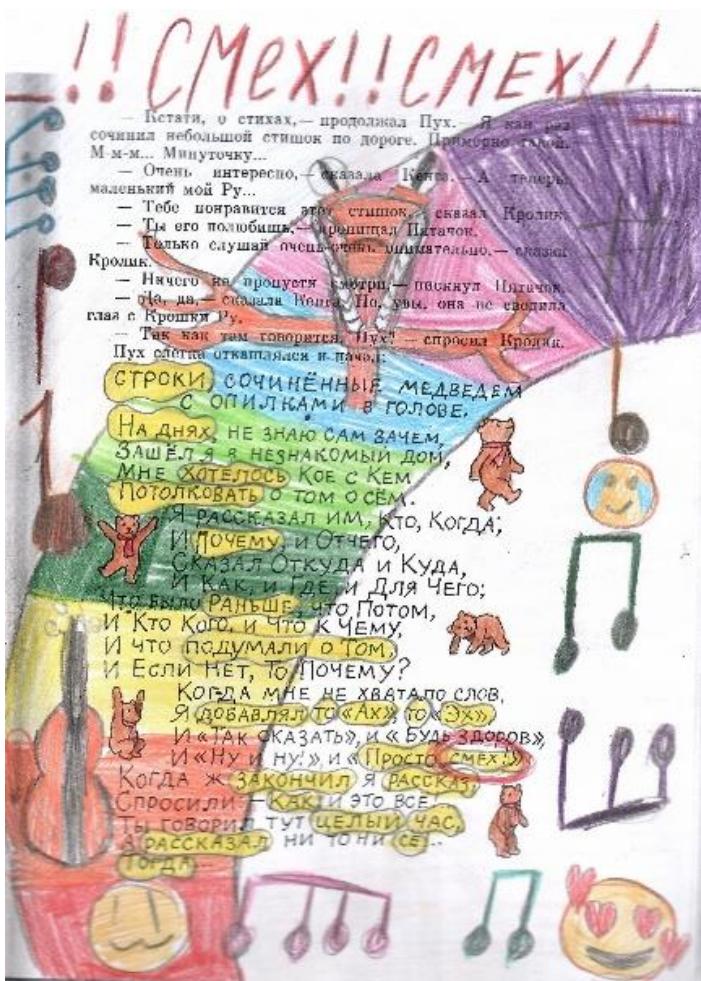 !! СМЕХ!! СМЕХ!!
— Кстати, о стихах,— продолжал Пух.— Я как раз
сочинил небольшой стишок по дороге. Примерно такой.
М-м-м... Минуточку...
— Очень интересно,— сказала Кенга.— А теперь,
маленький мой Ру...
— Тебе понравится этот стишок,— сказал Кролик.
— Ты его полюбишь,— пропищал Пятачок.
— Только слушай очень-очень внимательно,— сказал
Кролик.
— Ничего не пропусти смотри,— пискнул Пятачок.
— Да, да,— сказала Кенга. Но, увы, она не сводила
глаз с Крошки Ру.
— Так как там говорится, Пух? — спросил Кролик.
Пух слегка откашлялся и начал:
СТРОКИ, СОЧИНЁННЫЕ МЕДВЕДЕМ
С ОПИЛКАМИ В ГОЛОВЕ.
НА ДНЯХ, НЕ ЗНАЮ САМ ЗАЧЕМ,
ЗАШЁЛ Я В НЕЗНАКОМЫЙ ДОМ,
МНЕ ХОТЕЛОСЬ КОЕ С КЕМ
ПОТОЛКОВАТЬ О ТОМ О СЁМ.
Я РАССКАЗАЛ ИМ, КТО, КОГДА,
И ПОЧЕМУ, И ОТЧЕГО,
СКАЗАЛ ОТКУДА И КУДА,
И КАК, И ГДЕ, И ДЛЯ ЧЕГО;
ЧТО БЫЛО РАНЬШЕ, ЧТО ПОТОМ,
И КТО КОГО, И ЧТО К ЧЕМУ,
И ЧТО ПОДУМАЛИ О ТОМ,
И ЕСЛИ НЕТ, ТО ПОЧЕМУ?
КОГДА МНЕ НЕ ХВАТАЛО СЛОВ,
Я ДОБАВЛЯЛ ТО «АХ», ТО «ЭХ»
И «ТАК СКАЗАТЬ», И «БУДЬ ЗДОРОВ»,
И «НУ И НУ!», И «ПРОСТО СМЕХ!»
КОГДА Ж ЗАКОНЧИЛ Я РАССКАЗ,
СПРОСИЛИ — КАК И ЭТО ВСЕ,
ТЫ ГОВОРИЛ ТУТ ЦЕЛЫЙ ЧАС,
А РАССКАЗАЛ НИ ТО НИ СЁ...
ТОГДА...